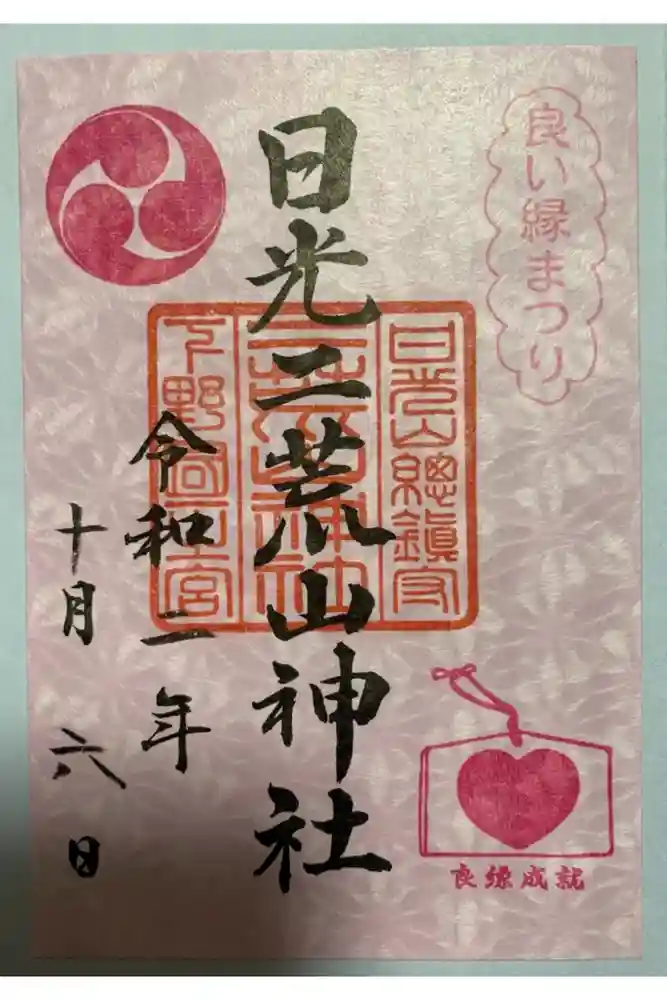 良い縁まつり
日光二荒山神社
日光山總鎮守
二荒山神社
下野國一宮
令和二年
十月六日
良縁成就